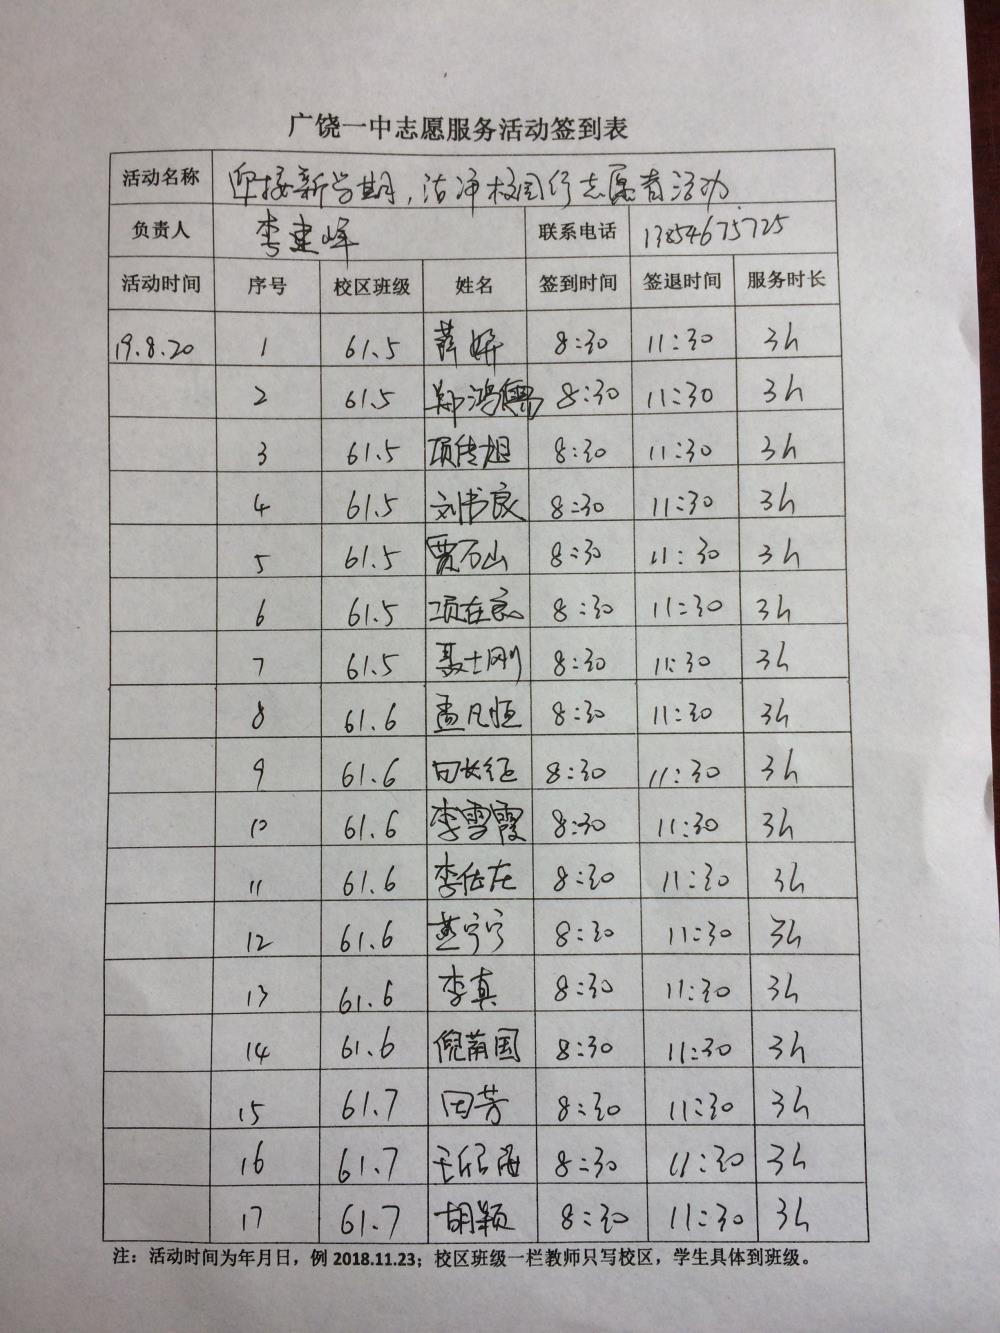 广饶一中志愿服务活动签到表
活动名称 迎接新学期，洁净校园行志愿者活动
负责人 李建峰 联系电话 13854675725
活动时间 序号 校区班级 姓名 签到时间 签退时间 服务时长
19.8.20 1 61.5 薛娇 8:30 11:30 3h
2 61.5 郑鸿儒 8:30 11:30 3h
3 61.5 项传旭 8:30 11:30 3h
4 61.5 刘书良 8:30 11:30 3h
5 61.5 贾石山 8:30 11:30 3h
6 61.5 项在良 8:30 11:30 3h
7 61.5 聂士刚 8:30 11:30 3h
8 61.6 孟凡恒 8:30 11:30 3h
9 61.6 田长征 8:30 11:30 3h
10 61.6 李雪霞 8:30 11:30 3h
11 61.6 李 8:30 11:30 3h
12 61.6 燕宁宁 8:30 11:30 3h
13 61.6 李真 8:30 11:30 3h
14 61.6 倪南国 8:30 11:30 3h
15 61.7 田芳 8:30 11:30 3h
16 61.7 王 8:30 11:30 3h
17 61.7 胡颖 8:30 11:30 3h
注：活动时间为年月日，例 2018.11.23；校区班级一栏教师只写校区，学生具体到班级。